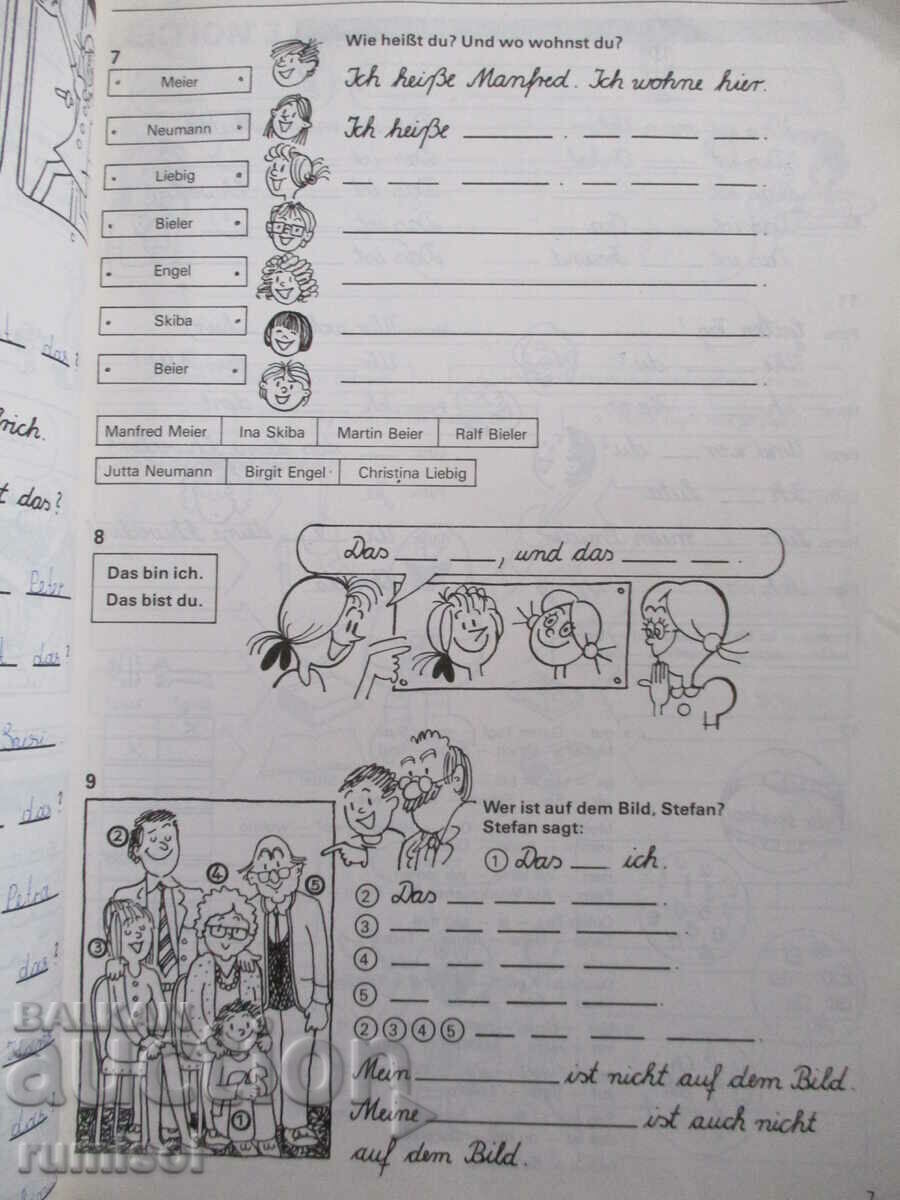 7
Wie heißt du? Und wo wohnst du?
Meier
Ich heiße Manfred. Ich wohne hier.
Neumann
Ich heiße ______ . ___ ____ ____.
Liebig
Bieler
Engel
Skiba
Beier
Manfred Meier Ina Skiba Martin Beier Ralf Bieler
Jutta Neumann Birgit Engel Christina Liebig
8
Das bin ich.
Das bist du.
Das ____ ____, und das ____ ___.
9
Wer ist auf dem Bild, Stefan?
Stefan sagt:
① Das ___ ich.
② Das ___ ____ ______.
③
④
⑤
② ③ ④ ⑤
Mein __________ ist nicht auf dem Bild.
Meine _______________ ist auch nicht
auf dem Bild.
② ④ ⑤ ③ ①
das?
das?
Petr
das?
das?
Petra
das?
das?
BALKAN
auction
rumisol
7